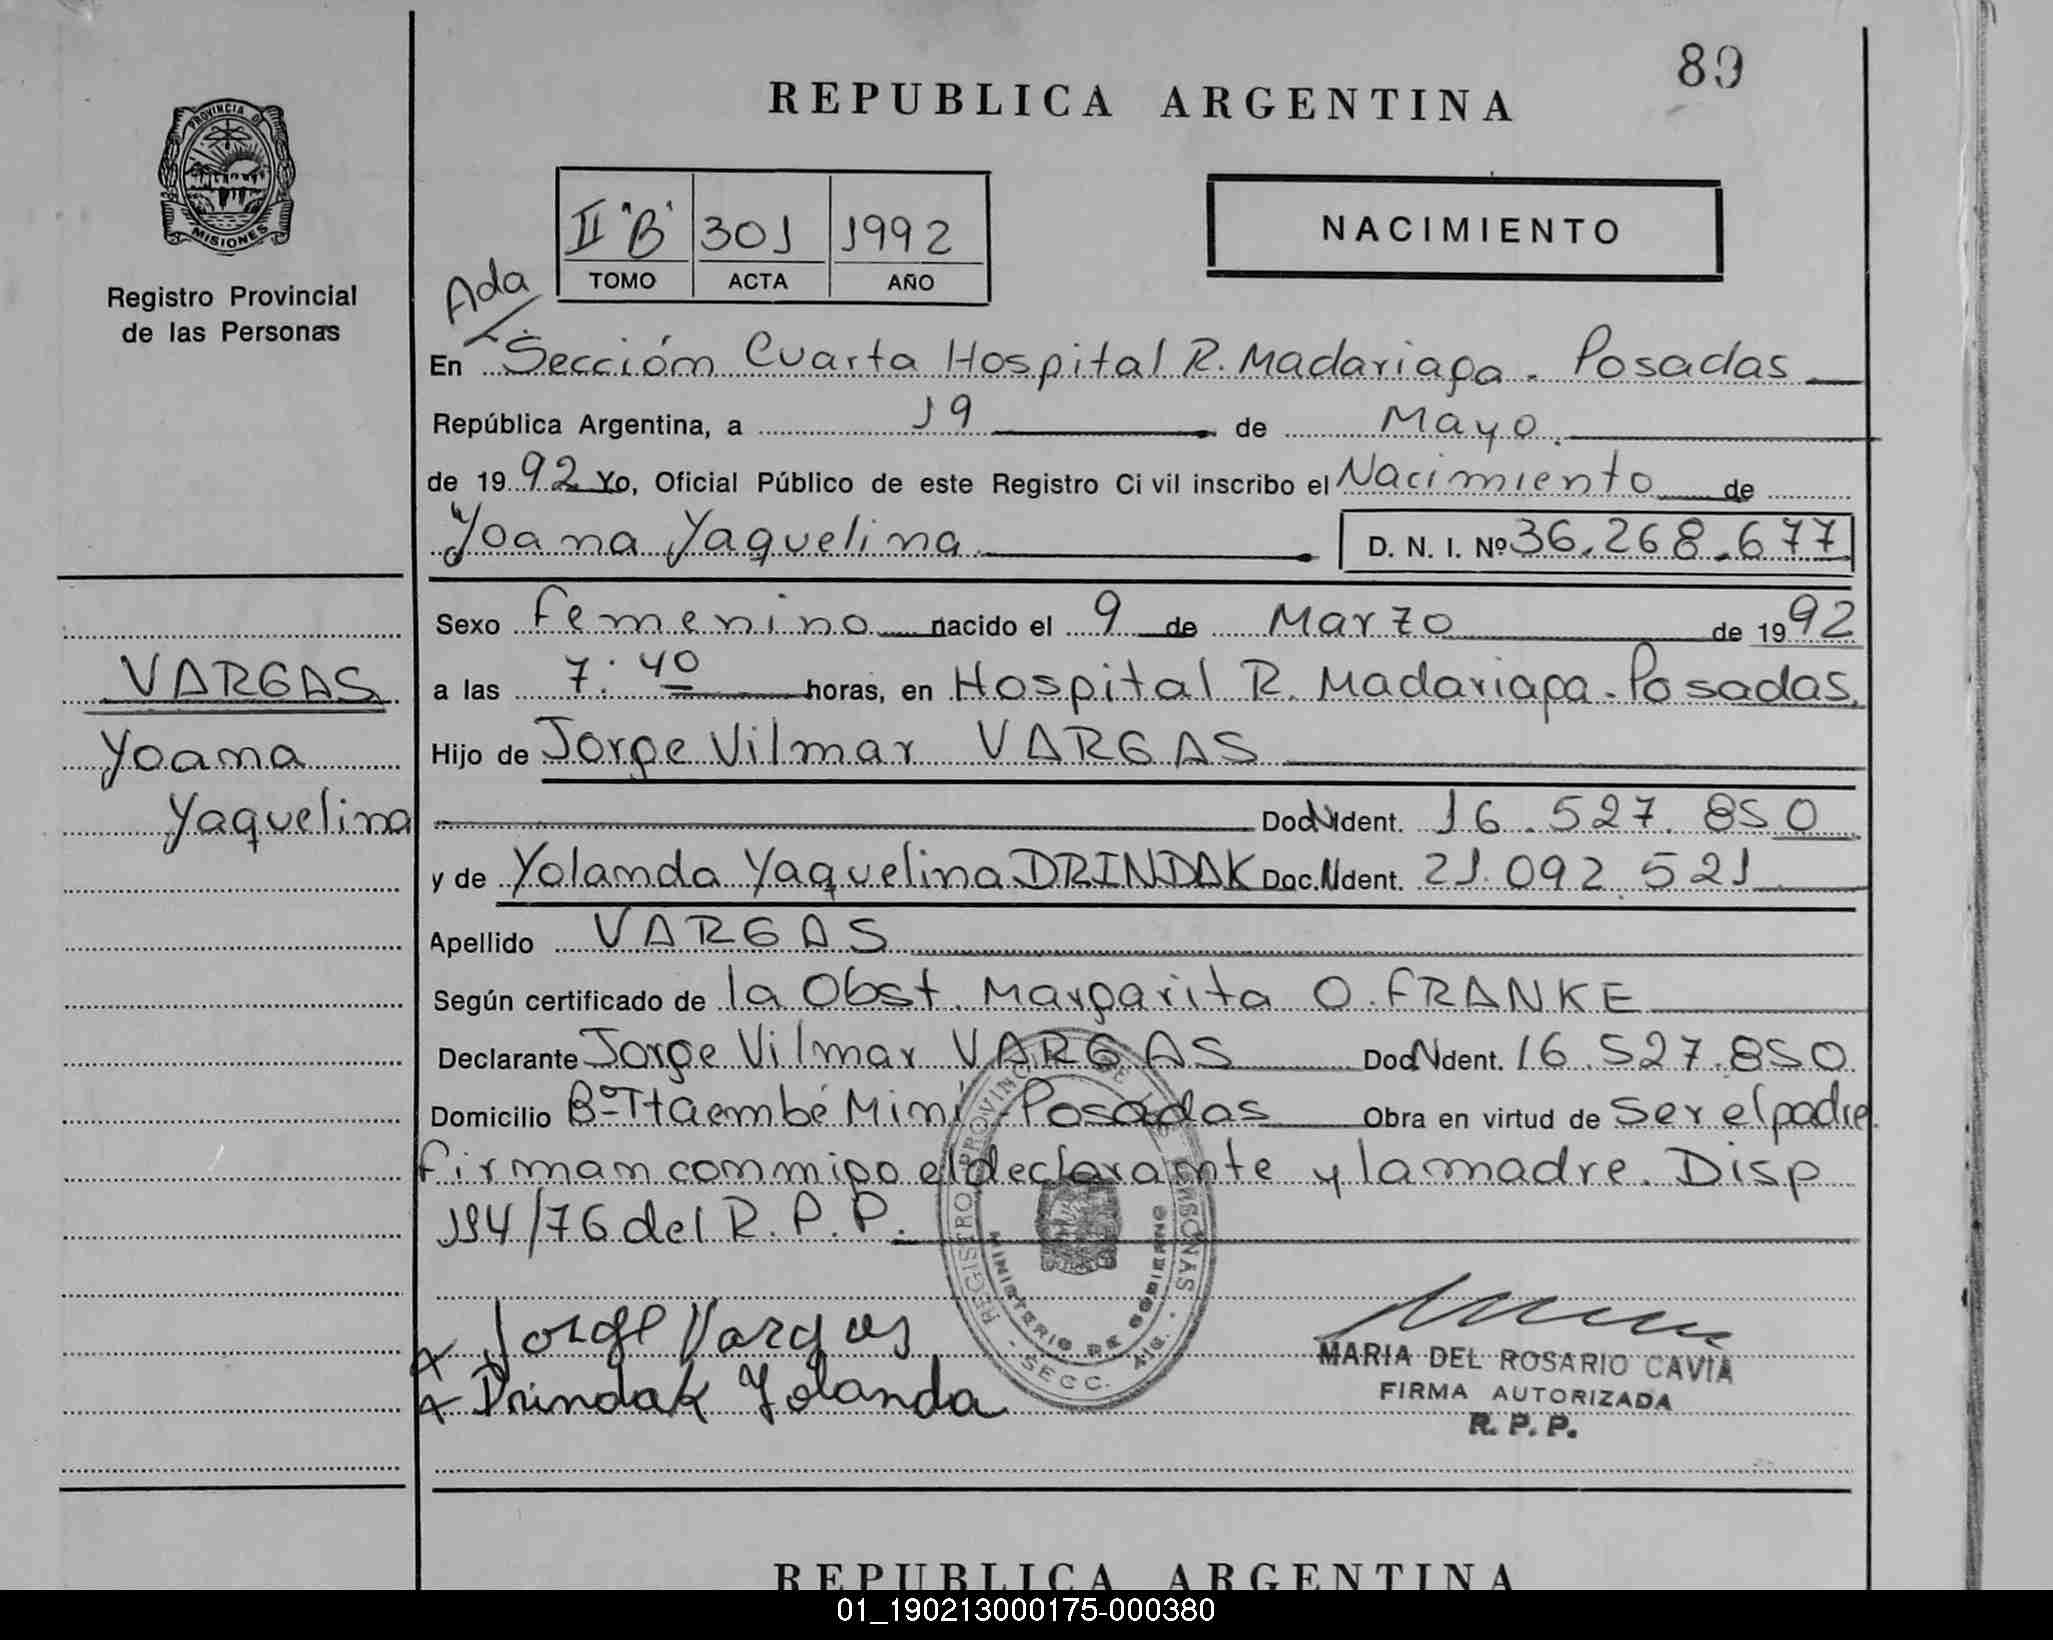 89
REPUBLICA ARGENTINA
PROVINCIA DE
MISIONES
Registro Provincial
de las Personas
II "B" 301 1992
TOMO ACTA AÑO
NACIMIENTO
Ada
En Sección Cuarta Hospital R. Madariaga - Posadas
República Argentina, a 19 de Mayo
de 1992 Yo, Oficial Público de este Registro Civil inscribo el Nacimiento de
Yoana Yaquelina D. N. I. Nº 36.268.677
Sexo Femenino nacido el 9 de Marzo de 1992
VARGAS
a las 7:40 horas, en Hospital R. Madariaga - Posadas
Yoana
Hijo de Jorge Vilmar VARGAS
Yaquelina
Doc. Ident. 16.527.850
y de Yolanda Yaquelina DRINDAK Doc. Ident. 21.092.521
Apellido VARGAS
Según certificado de la Obst. Margarita O. FRANKE
Declarante Jorge Vilmar VARGAS Doc. Ident. 16.527.850
Domicilio Bº Itaembé Miní - Posadas Obra en virtud de Ser el padre
firman conmigo el declarante y la madre. Disp
194/76 del R. P. P.
REGISTRO PROVINCIAL DE LAS PERSONAS
MINISTERIO DE GOBIERNO
SECC.
Jorge Vargas
Drindak Yolanda
MARIA DEL ROSARIO CAVIA
FIRMA AUTORIZADA
R. P. P.
REPUBLICA ARGENTINA
01_190213000175-000380